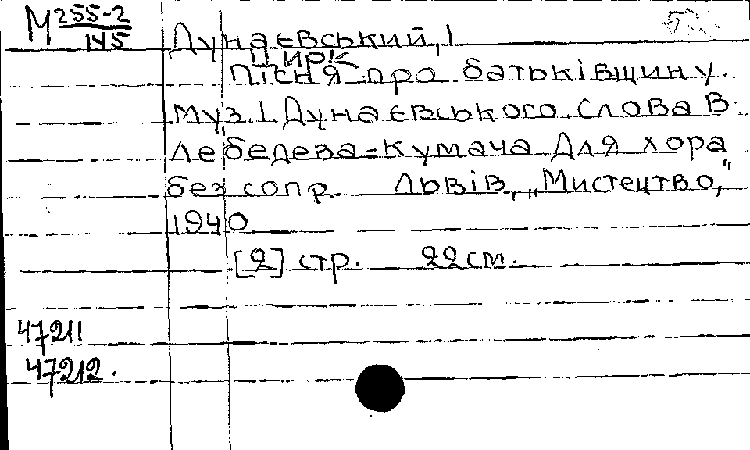 М 255-2
145
Дунаєвський, І
Цирк
Пісня про батьківщину.
муз. І. Дунаєвського. Слова В.
Лебедева-Кумача Для хора
без сопр. Львів, „Мистецтво,"
1940
[2] стр. 22см.
47211
47212.